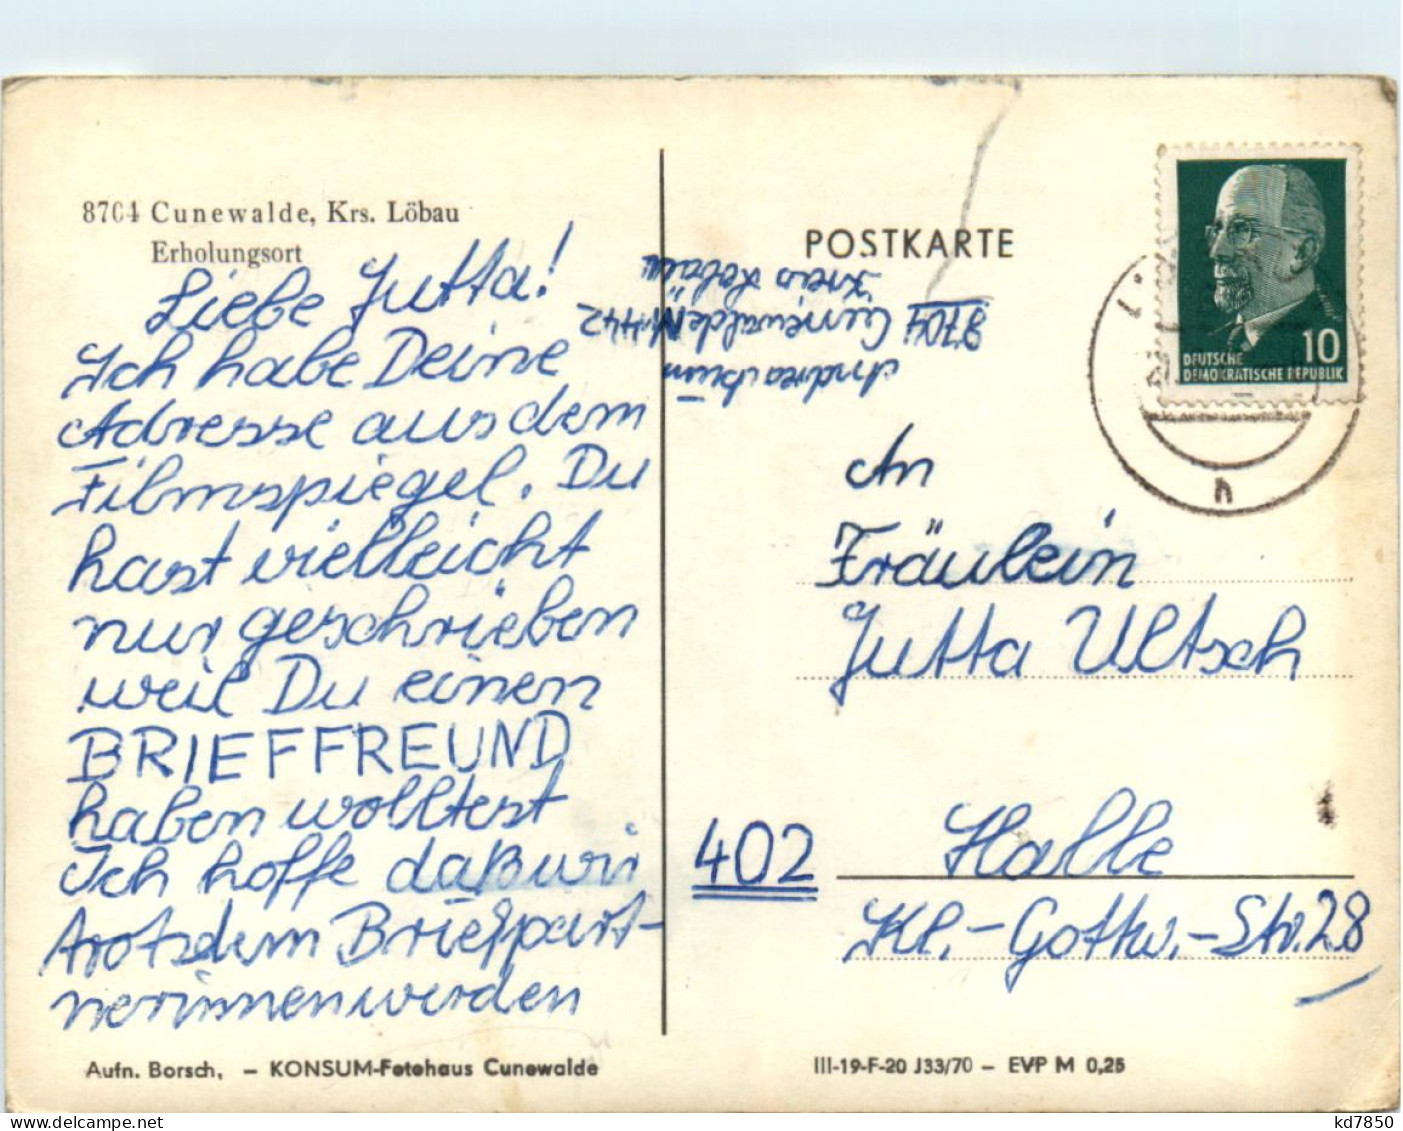 8704 Cunewalde, Krs. Löbau
Erholungsort
Liebe Jutta!
Ich habe Deine
Adresse aus dem
Filmspiegel. Du
hast vielleicht
nur geschrieben
weil Du einen
BRIEFFREUND
haben wolltest
Ich hoffe daß wir
trotzdem Briefpart-
nerinnen werden
Aufn. Borsch, – KONSUM-Fotohaus Cunewalde
POSTKARTE
8704 Cunewalde Nr. 442
Kreis Löbau
DEUTSCHE
DEMOKRATISCHE REPUBLIK
10
h
An
Fräulein
Jutta Ultsch
402 Halle
Kl.-Gottw.-Str. 28
III-19-F-20 J33/70 – EVP M 0,25
kd7850